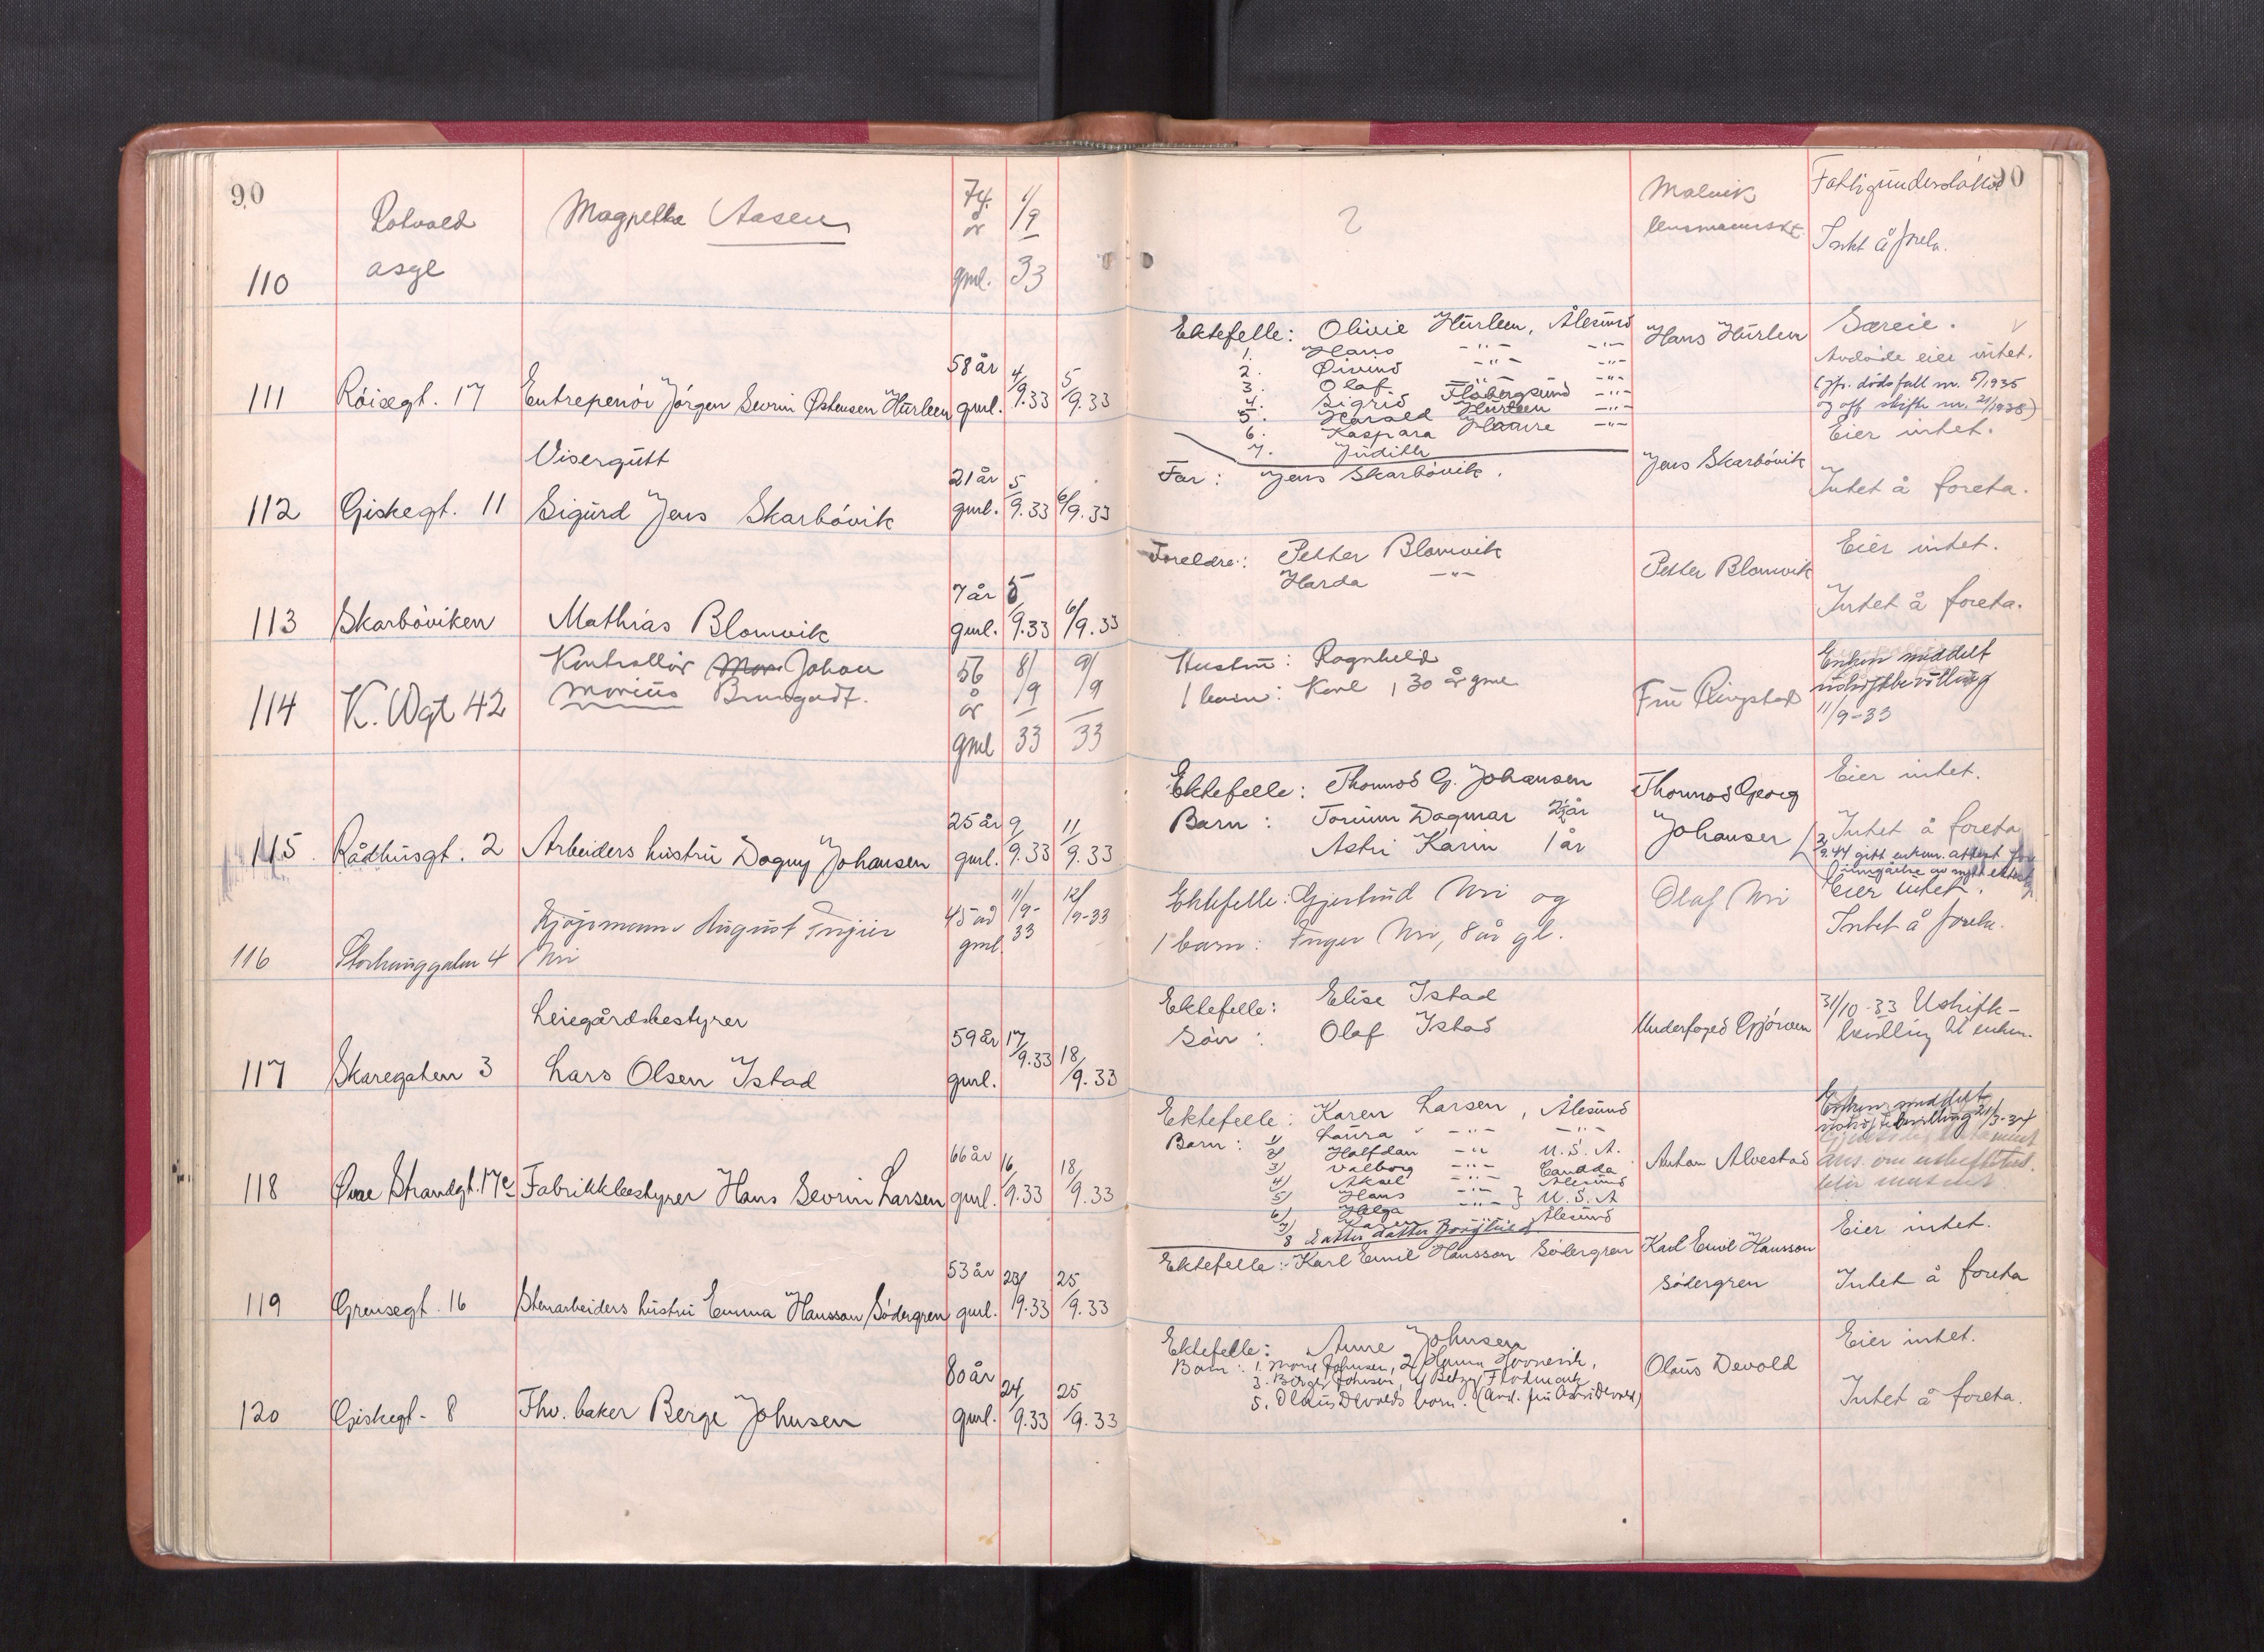 90
110
Rotvold
asyl
Magrethe Aasen
74.
år
gml.
1/9
33
2
Malvik
lensmannskt.
Fattigunderstøttet
90
Intet å foreta.
111
Røisegt. 17
Entreprenør Jørgen Sevrin Østensen Hurlen
58 år
gml.
4/9.33
5/9.33
Ektefelle: Olivie Hurlen, Ålesund
1. Hans -"- -"-
2. Øivind -"- -"-
3. Olaf -"- -"-
4. Sigrid Flobergsund -"-
5. Harald Hurlen -"-
6. Kaspara -"-
7. Judith
Hans Hurlen
Særeie.
Avdøde eier intet.
(jfr. dødsfall nr. 5/1935
og off skifte nr. 21/1935)
112
Giskegt. 11
Visergutt
Sigurd Jens Skarbövik
21 år
gml.
5/9.33
6/9.33
Far: Jens Skarbövik.
Jens Skarbövik
Eier intet.
Intet å foreta.
113
Skarböviken
Mathias Blomvik
7 år
gml.
5/9.33
6/9.33
Foreldre: Petter Blomvik
Harda -"-
Petter Blomvik
Eier intet.
Intet å foreta.
114
K. Wgt 42
Kontrollør Johan
Marius
56
år
gml
8/9
33
9/9
33
Hustru: Ragnhild
1 barn: Karl, 30 år gml
Fru Ringstad
Enken meddelt
uskiftebevilling
11/9-33
115.
Rådhusgt. 2
Arbeiders hustru Dagny Johansen
25 år
gml.
9/9.33
11/9.33
Ektefelle: Thormod G. Johansen
Barn: Torunn Dagmar 2½ år
Astri Karin 1 år
Thormod Georg
Johansen
Eier intet.
Intet å foreta
116
Storhauggaten 4
Kjøpmann August
Nri
45 år
gml.
11/9-
33
12/9-33
Ektefelle: Gjertrud Nri og
1 barn: Inger Nri, 8 år gl.
Olaf Nri
Eier intet.
Intet å foreta.
117
Skaregaten 3
Leiegårdsbestyrer
Lars Olsen Istad
59 år
gml.
17/9.33
18/9.33
Ektefelle: Elise Istad
Sön: Olaf Istad
Underfoged Gjörven
31/10-33 Uskifte-
bevilling til enken.
118
Övre Strandgt. 17c
Fabrikkbestyrer Hans Sevrin Larsen
66 år
gml.
16/9.33
18/9.33
Ektefelle: Karen Larsen, Ålesund
Barn: 1) Laura -"- -"-
2) Halfdan -"- U.S.A.
3) Valborg -"- Canada
4) Aksel -"- Ålesund
5) Hans -"- } U.S.A
6) Helga -"-
7) Karen -"- Ålesund
8
Anton Alvestad
Enken meddelt
uskiftebevilling 21/3-34
119
Grensegt. 16
Stenarbeiders hustru Emma Hansson Södergren
53 år
gml.
23/9.33
25/9.33
Ektefelle: Karl Emil Hansson Södergren
Karl Emil Hansson
Södergren
Eier intet.
Intet å foreta
120
Giskegt. 8
Fhv. baker Berge Johnsen
80 år
gml.
24/9.33
25/9.33
Ektefelle: Anne Johnsen
Barn: 1. Johnsen, 2. Hanna
3. Berge Johnsen, 4 Betzy Flodmark
5. Olaus Devolds barn. (Avd. fru Astri Devold)
Olaus Devold
Eier intet.
Intet å foreta.